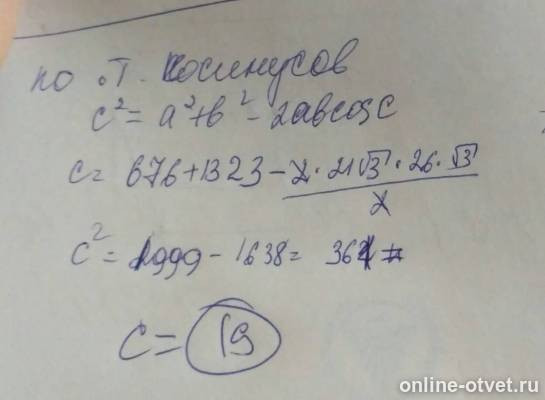 по т. косинусов
c² = a² + b² - 2abcosc
c = 676 + 1323 - 2 · 21√3 · 26 · √3 / 2
c² = 1999 - 1638 = 361
c = 19
online-otvet.ru